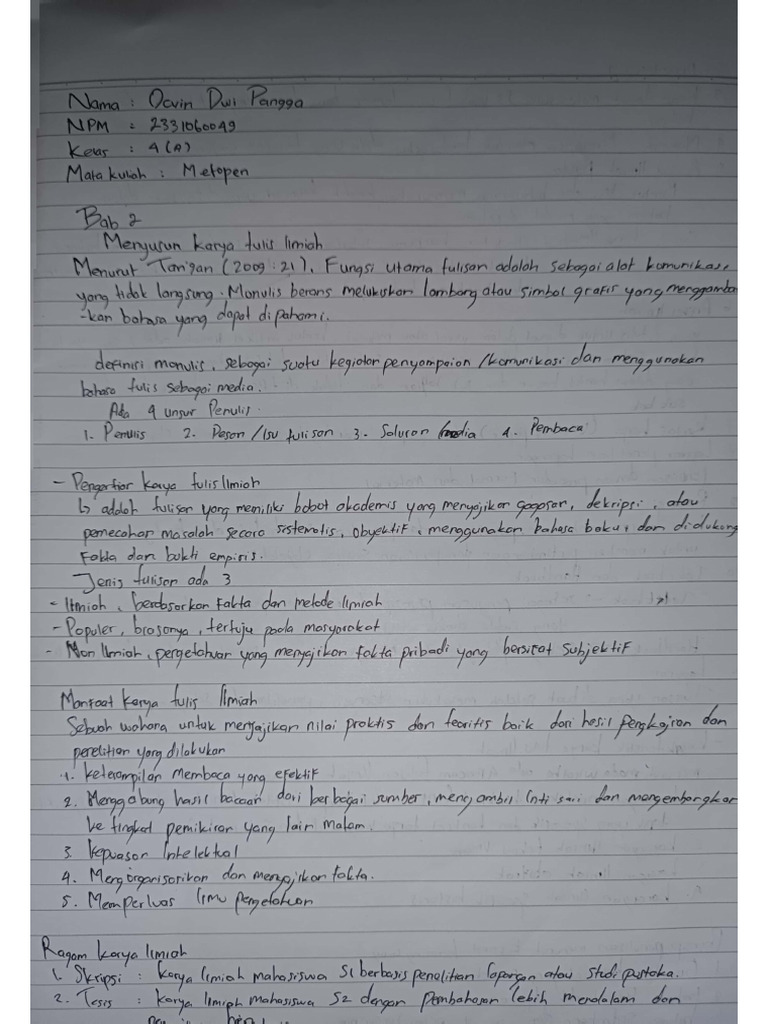 Nama : Ocvin Dwi Pangga
NPM : 2331060049
Kelas : 4 (A)
Mata kuliah : Metopen
Bab 2
Menyusun karya tulis Ilmiah
Menurut Tarigan (2009:21). Fungsi utama tulisan adalah sebagai alat komunikasi
yang tidak langsung. Menulis berarti melukiskan lambang atau simbol grafis yang menggamba
-kan bahasa yang dapat dipahami.
definisi menulis, sebagai suatu kegiatan penyampaian /komunikasi dan menggunakan
bahasa tulis sebagai media.
Ada 4 unsur Penulis.
1. Penulis 2. Pesan /Isu tulisan 3. Saluran /media 4. Pembaca
- Pengertian karya tulis Ilmiah
↳ adalah tulisan yang memiliki bobot akademis yang menyajikan gagasan, dekripsi, atau
pemecahan masalah secara sistematis, obyektif, menggunakan bahasa baku, dan didukung
Fakta dan bukti empiris.
Jenis tulisan ada 3
- Ilmiah, berdasarkan fakta dan metode Ilmiah
- Populer, biasanya, tertuju pada masyarakat
- Non Ilmiah, pengetahuan yang menyajikan fakta pribadi yang bersifat Subjektif
Manfaat karya tulis Ilmiah
Sebuah wahana untuk menyajikan nilai praktis dan teoritis baik dari hasil Pengkajian dan
penelitian yang dilakukan
1. keterampilan membaca yang efektif
2. Menggabung hasil bacaan dari berbagai sumber, mengambil Inti sari dan mengembangkan
ke tingkat pemikiran yang lain
3. kepuasan Intelektual
4. Mengorganisasikan dan menyajikan fakta.
5. Memperluas Ilmu pengetahuan
Ragam karya Ilmiah
1. Skripsi : karya Ilmiah mahasiswa S1 berbasis penelitian lapangan atau studi pustaka.
2. Tesis : karya Ilmiah mahasiswa S2 dengan pembahasan lebih mendalam dan